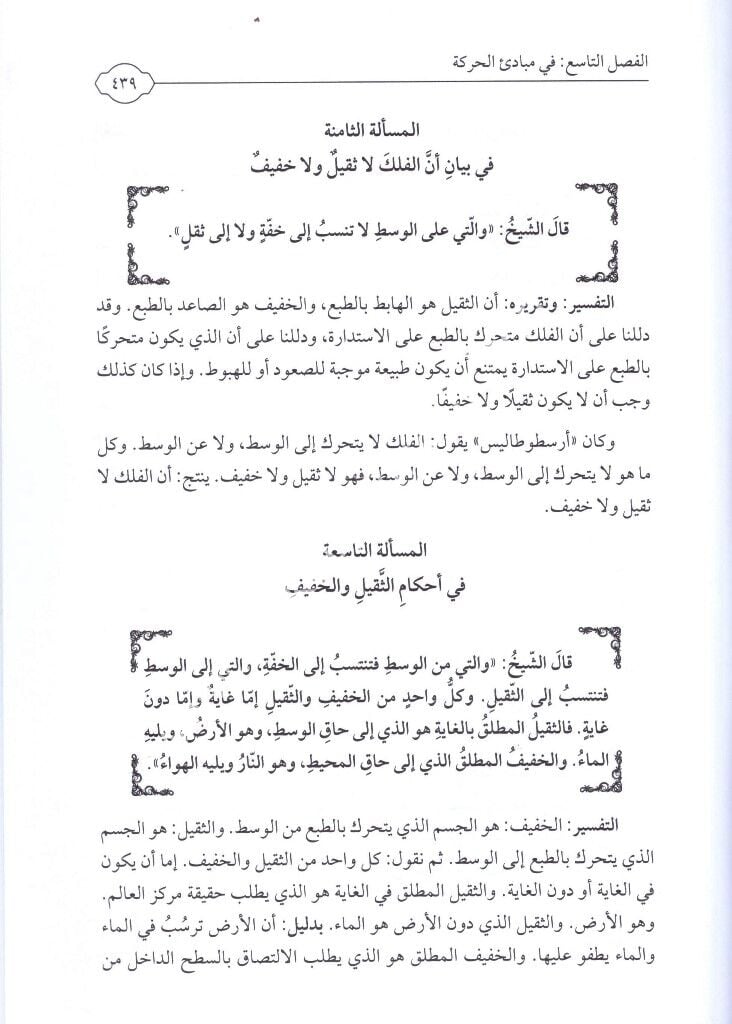 الفصل التاسع: في مبادئ الحركة
٤٣٩
المسألة الثامنة
في بيانِ أنَّ الفلكَ لا ثقيلٌ ولا خفيفٌ
قالَ الشّيخُ: «والّتي على الوسطِ لا تنسبُ إلى خفّةٍ ولا إلى ثقلٍ».
التفسير: وتقريره: أن الثقيل هو الهابط بالطبع، والخفيف هو الصاعد بالطبع. وقد
دللنا على أن الفلك متحرك بالطبع على الاستدارة، ودللنا على أن الذي يكون متحركًا
بالطبع على الاستدارة يمتنع أن يكون طبيعة موجبة للصعود أو للهبوط. وإذا كان كذلك
وجب أن لا يكون ثقيلًا ولا خفيفًا.
وكان «أرسطوطاليس» يقول: الفلك لا يتحرك إلى الوسط، ولا عن الوسط. وكل
ما هو لا يتحرك إلى الوسط، ولا عن الوسط، فهو لا ثقيل ولا خفيف. ينتج: أن الفلك لا
ثقيل ولا خفيف.
المسألة التاسعة
في أحكامِ الثَّقيلِ والخفيفِ
قالَ الشّيخُ: «والتي من الوسطِ فتنتسبُ إلى الخفّةِ، والتي إلى الوسطِ
فتنتسبُ إلى الثّقيلِ. وكلُّ واحدٍ من الخفيفِ والثّقيلِ إمّا غايةٌ وإمّا دونَ
غايةٍ. فالثقيلُ المطلقُ بالغايةِ هو الذي إلى حاقِ الوسطِ، وهو الأرضُ، ويليهِ
الماءُ. والخفيفُ المطلقُ الذي إلى حاقِ المحيطِ، وهو النّارُ ويليه الهواءُ».
التفسير: الخفيف: هو الجسم الذي يتحرك بالطبع من الوسط. والثقيل: هو الجسم
الذي يتحرك بالطبع إلى الوسط. ثم نقول: كل واحد من الثقيل والخفيف. إما أن يكون
في الغاية أو دون الغاية. والثقيل المطلق في الغاية هو الذي يطلب حقيقة مركز العالم.
وهو الأرض. والثقيل الذي دون الأرض هو الماء. بدليل: أن الأرض ترسُبُ في الماء
والماء يطفو عليها. والخفيف المطلق هو الذي يطلب الالتصاق بالسطح الداخل من